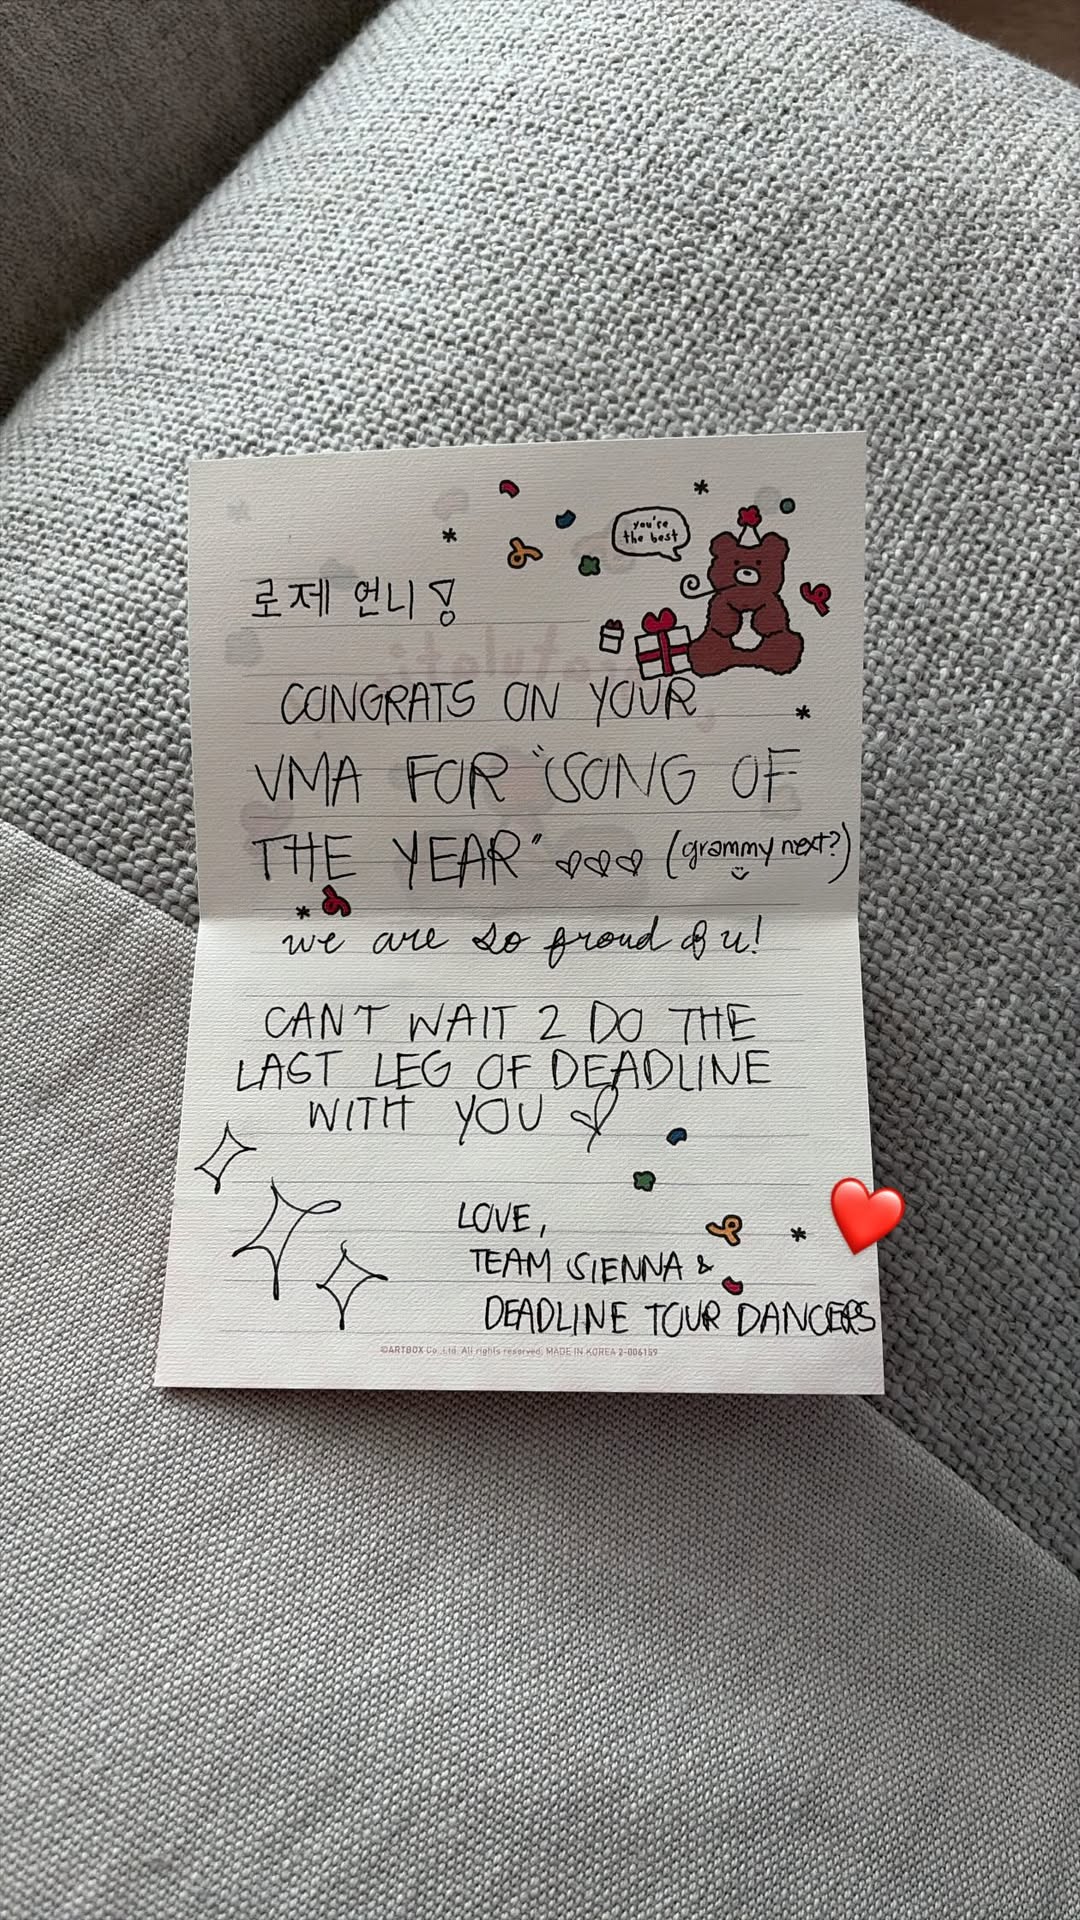 you're
the best
로제 언니!
CONGRATS ON YOUR
VMA FOR "SONG OF
THE YEAR" ♡♡♡ (grammy next?)
we are so proud of u!
CAN'T WAIT 2 DO THE
LAST LEG OF DEADLINE
WITH YOU ♡
LOVE,
TEAM SIENNA &
DEADLINE TOUR DANCERS
©ARTBOX Co.,Ltd. All rights reserved. MADE IN KOREA 2-006159